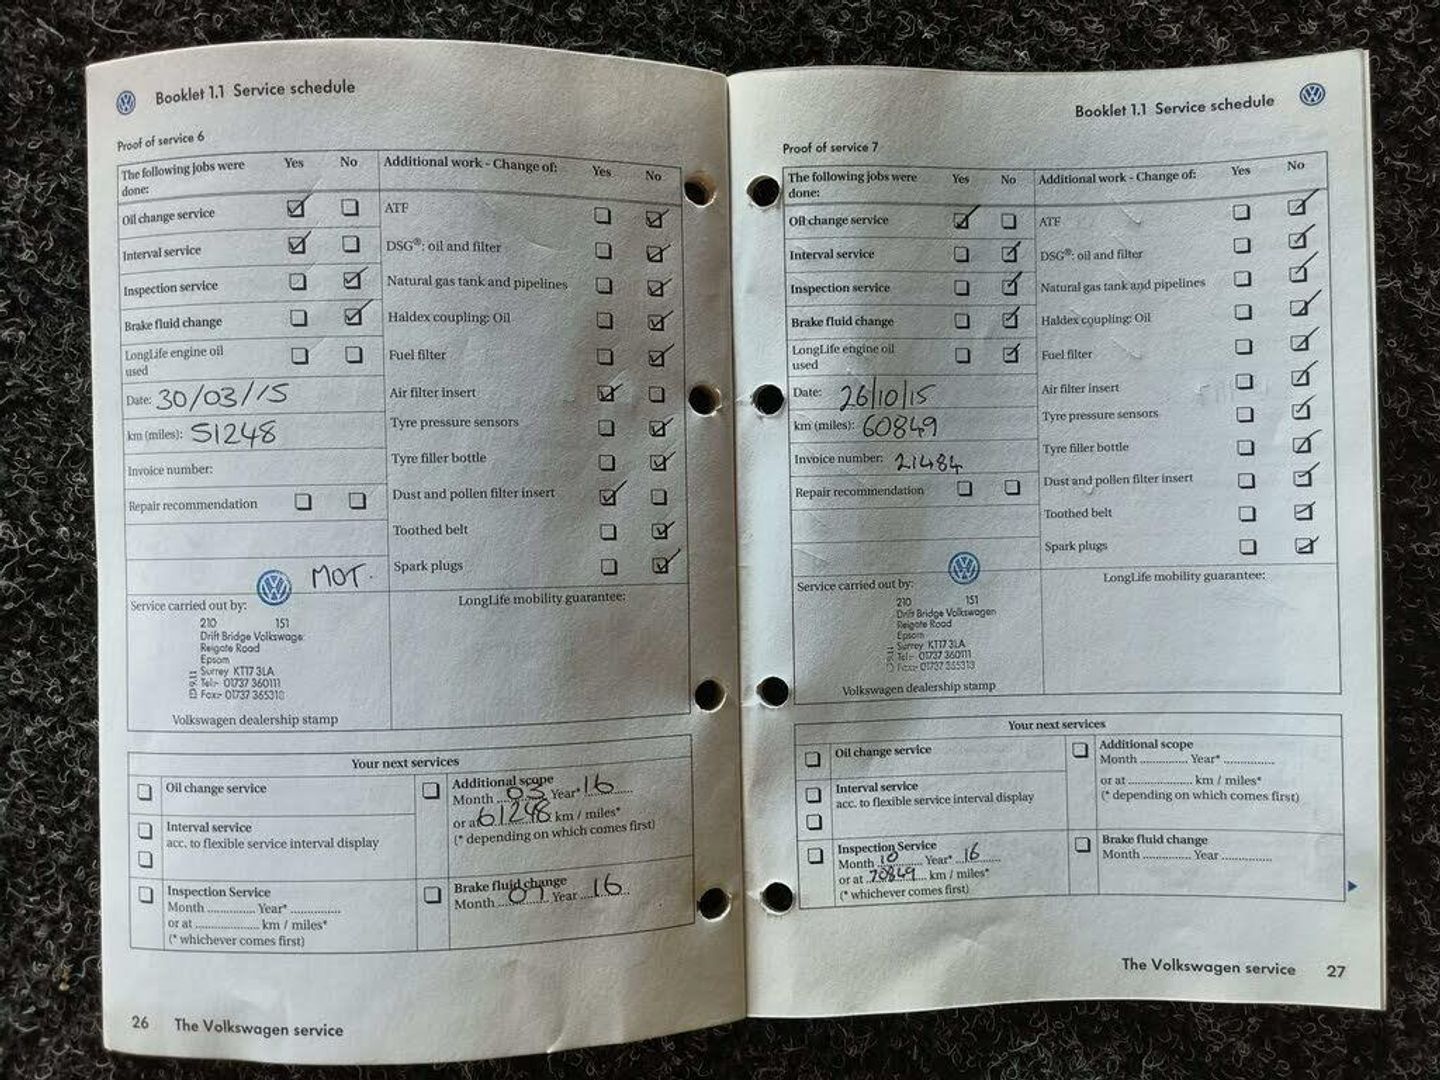 Booklet 1.1 Service schedule
Proof of service 6
The following jobs were done: Yes No
Oil change service
Interval service
Inspection service
Brake fluid change
LongLife engine oil used
Date: 30/03/15
km (miles): 51248
Invoice number:
Repair recommendation
MOT.
Service carried out by:
210 151
Drift Bridge Volkswage
Reigate Road
Epsom
Surrey KT17 3LA
Tel:- 01737 360111
Fax:- 01737 365313
Volkswagen dealership stamp
Additional work - Change of: Yes No
ATF
DSG®: oil and filter
Natural gas tank and pipelines
Haldex coupling: Oil
Fuel filter
Air filter insert
Tyre pressure sensors
Tyre filler bottle
Dust and pollen filter insert
Toothed belt
Spark plugs
LongLife mobility guarantee:
Your next services
Oil change service
Interval service
acc. to flexible service interval display
Inspection Service
Month ............... Year* ...............
or at .................... km / miles*
(* whichever comes first)
Additional scope
Month 03 Year* 16
or at 61248 km / miles*
(* depending on which comes first)
Brake fluid change
Month Year 16
26 The Volkswagen service
Booklet 1.1 Service schedule
Proof of service 7
The following jobs were done: Yes No
Oil change service
Interval service
Inspection service
Brake fluid change
LongLife engine oil used
Date: 26/10/15
km (miles): 60849
Invoice number: 21484
Repair recommendation
Service carried out by:
210 151
Drift Bridge Volkswagen
Reigate Road
Epsom
Surrey KT17 3LA
Tel:- 01737 360111
Fax:- 01737 365313
Volkswagen dealership stamp
Additional work - Change of: Yes No
ATF
DSG®: oil and filter
Natural gas tank and pipelines
Haldex coupling: Oil
Fuel filter
Air filter insert
Tyre pressure sensors
Tyre filler bottle
Dust and pollen filter insert
Toothed belt
Spark plugs
LongLife mobility guarantee:
Your next services
Oil change service
Interval service
acc. to flexible service interval display
Inspection Service
Month 10 Year* 16
or at 70849 km / miles*
(* whichever comes first)
Additional scope
Month ............... Year* ...............
or at .................... km / miles*
(* depending on which comes first)
Brake fluid change
Month ............... Year ...............
The Volkswagen service 27